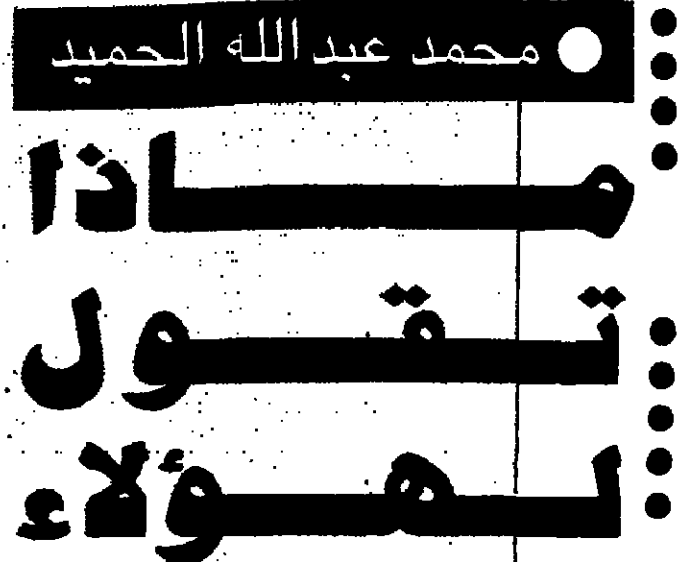 محمد عبدالله الحميد
ماذا
تقول
لهؤلاء